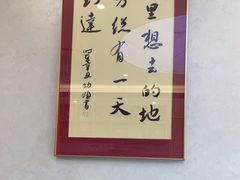 里想去的地
方總有一天
到達